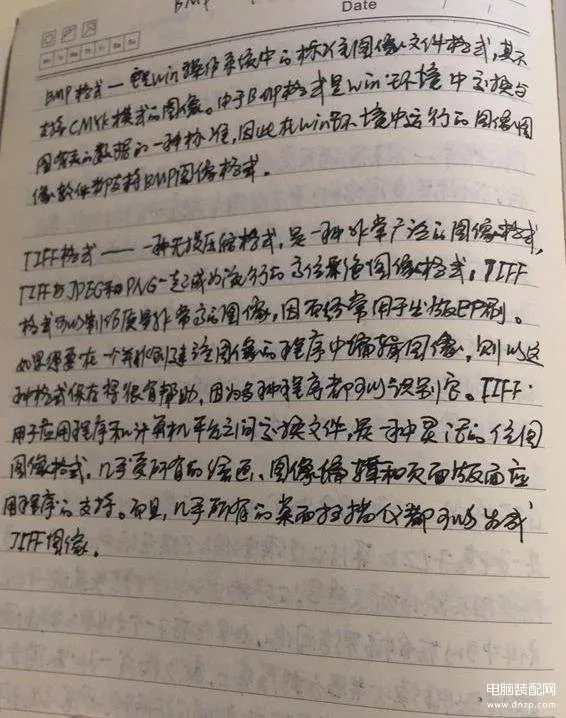 BMP
Date
BMP格式—它是Win操作系统中的标准图像文件格式,其不
支持CMYK模式的图像。由于BMP格式是Win环境中交换与
图有关的数据的一种标准,因此在Win环境中运行的图像图
像软件都支持BMP图像格式。
TIFF格式——一种无损压缩格式,是一种非常广泛的图像格式,
TIFF与JPEG和PNG一起成为流行的高位彩色图像格式。TIFF
格式可以制作质量非常高的图像,因而经常用于出版印刷。
如果想要在一个非创建该图像的程序中编辑图像,则以这
种格式保存将很有帮助,因为多种程序都可以识别它。TIFF
用于应用程序和计算机平台之间交换文件,是一种灵活的位图
图像格式,几乎受所有的绘画、图像编辑和页面版面应
用程序的支持。而且,几乎所有的桌面扫描仪都可以生成
TIFF图像。
电脑装配网
www.dnzp.com